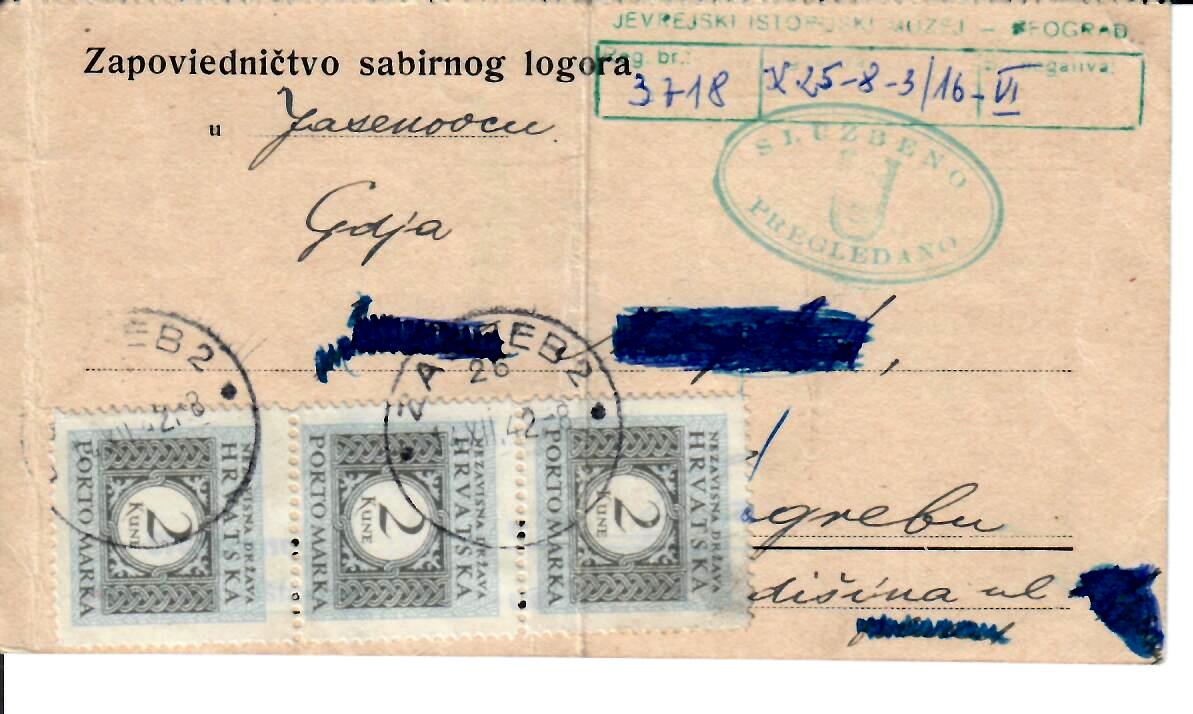 JEVREJSKI ISTORIJSKI MUZEJ – BEOGRAD
Reg. br.:
3718
X 25-8-3/16-VI
Zapoviedničtvo sabirnog logora
u Jasenovcu
SLUŽBENO
U
PREGLEDANO
Gdja
ZAGREB 2
26 XII.42-8
EB 2
XII.42-8
NEZAVISNA DRŽAVA
HRVATSKA
2
KUNE
PORTO MARKA
NEZAVISNA DRŽAVA
HRVATSKA
2
KUNE
PORTO MARKA
NEZAVISNA DRŽAVA
HRVATSKA
2
KUNE
PORTO MARKA
agrebu
dišina ul